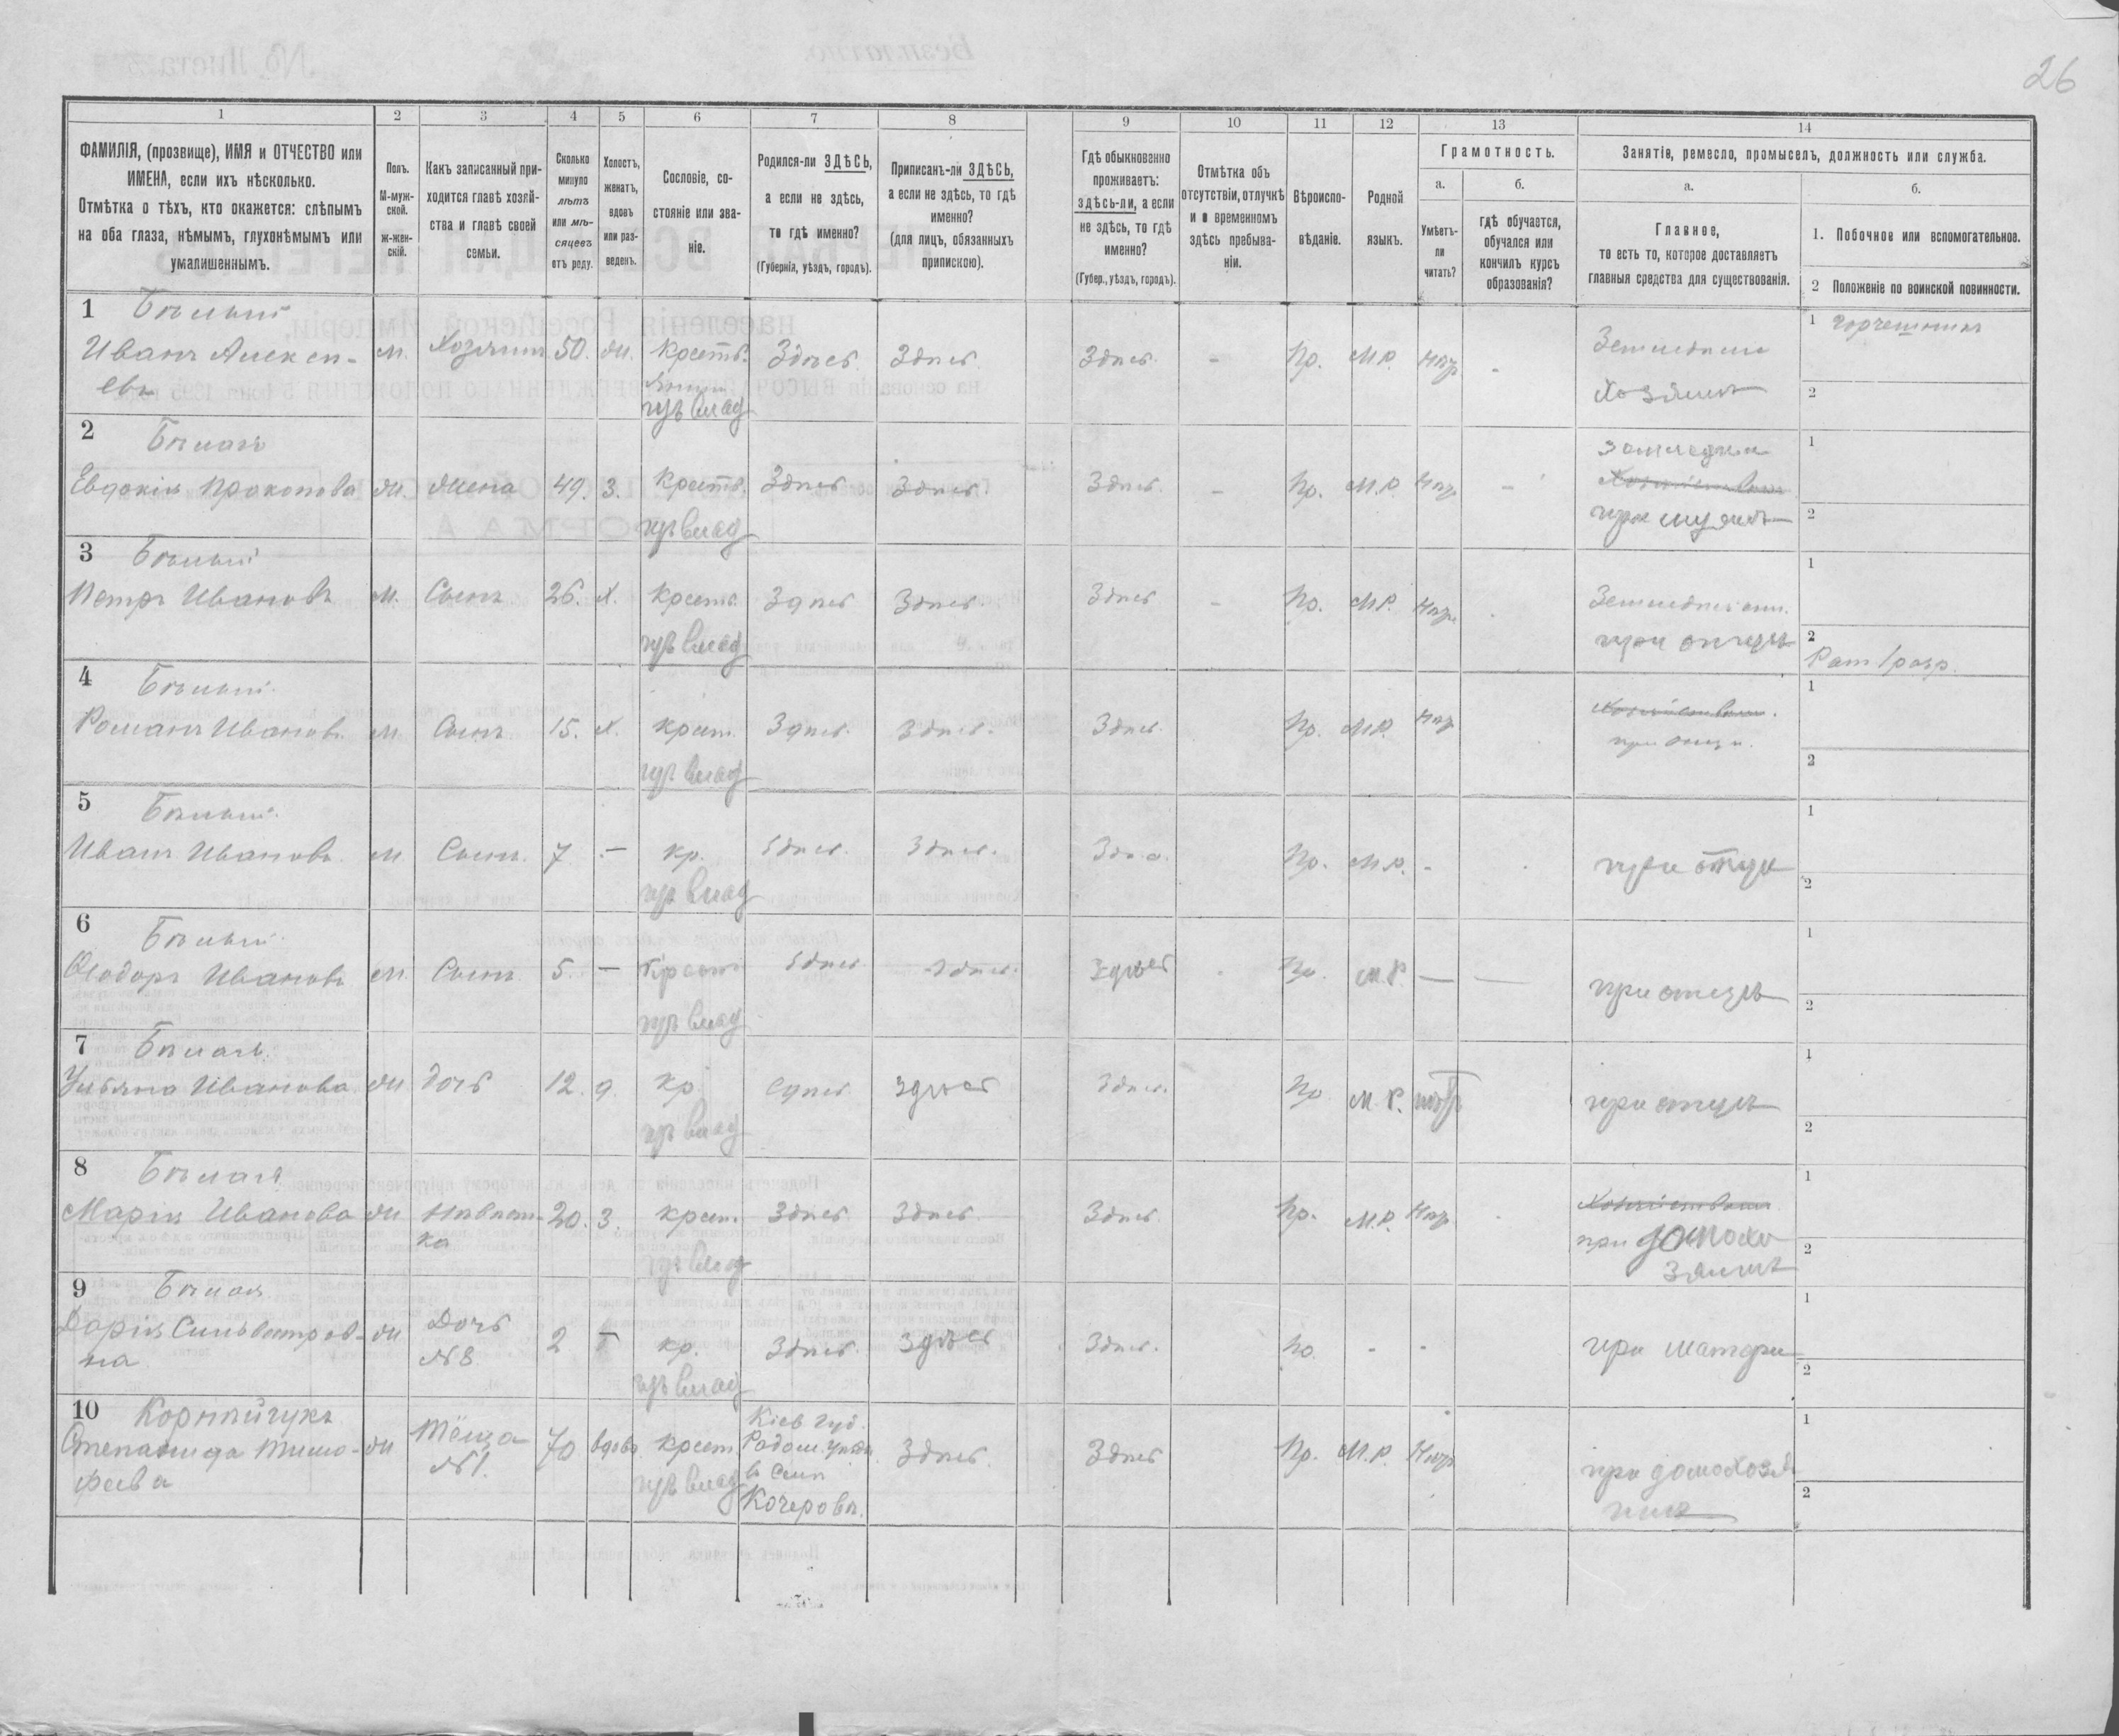 26
1
2
3
4
5
6
7
8
9
10
11
12
13
14
ФАМИЛІЯ, (прозвище), ИМЯ и ОТЧЕСТВО или
ИМЕНА, если ихъ нѣсколько.
Отмѣтка о тѣхъ, кто окажется: слѣпымъ
на оба глаза, нѣмымъ, глухонѣмымъ или
умалишеннымъ.
Полъ.
М-муж-
ской.
ж-жен-
скій.
Какъ записанный при-
ходится главѣ хозяй-
ства и главѣ своей
семьи.
Сколько
минуло
лѣтъ
или мѣ-
сяцевъ
отъ роду.
Холостъ,
женатъ,
вдовъ
или раз-
веденъ.
Сословіе, со-
стояніе или зва-
ніе.
Родился-ли ЗДѢСЬ,
а если не здѣсь,
то гдѣ именно?
(Губернія, уѣздъ, городъ).
Приписанъ-ли ЗДѢСЬ,
а если не здѣсь, то гдѣ
именно?
(для лицъ, обязанныхъ
припискою).
Гдѣ обыкновенно
проживаетъ:
здѣсь-ли, а если
не здѣсь, то гдѣ
именно?
(Губер., уѣздъ, городъ).
Отмѣтка объ
отсутствіи, отлучкѣ
и о временномъ
здѣсь пребыва-
ніи.
Вѣроиспо-
вѣданіе.
Родной
языкъ.
Грамотность.
а.
Умѣетъ-
ли
читать?
б.
гдѣ обучается,
обучался или
кончилъ курсъ
образованія?
Занятіе, ремесло, промыселъ, должность или служба.
а.
Главное,
то есть то, которое доставляетъ
главныя средства для существованія.
б.
1. Побочное или вспомогательное.
2 Положеніе по воинской повинности.
1 Бѣлый
Иванъ Алексѣ-
евъ
м. Хозяинъ 50. ж. крест. Здѣсь Здѣсь. Здѣсь. - Пр. М.Р. нгр -
Земледѣлие
Хозяинъ
1
2
2 Бѣлая
Евдокія Прокопова ж. жена 49. з. Крест. Здѣсь Здѣсь. Здѣсь. - Пр. М.Р. нгр -
при мужѣ
1
2
3 Бѣлый
Петръ Ивановъ м. Сынъ 26. х. крест. Здѣсь Здѣсь. Здѣсь - Пр. М.Р. нгр
при отцѣ
1
2
Рат 1 разр.
4 Бѣлый
Романъ Иванов. м Сынъ 15. х. крест. Здѣсь. Здѣсь. Здѣсь. Пр. М.Р. нгр
при отцѣ.
1
2
5 Бѣлый
Иванъ Ивановъ. м Сынъ. 7 - кр. Здѣсь. Здѣсь. Пр. М.Р. -
при отцѣ
1
2
6 Бѣлый
Ѳеодоръ Ивановъ м. Сынъ 5. - Крест Здѣсь Здѣсь. Здѣсь Пр. М.Р. - -
при отцѣ
1
2
7 Бѣлая
Ульяна Иванова ж дочь 12. д. кр. Здѣсь здѣсь Здѣсь. Пр М.Р.
при отцѣ
1
2
8 Бѣлая
Марія Иванова ж Невѣст-
ка
20. з. крест. Здѣсь. Здѣсь. Здѣсь. Пр. М.Р. нгр
при домохо
зяинѣ
1
2
9 Бѣлая
Дарія Сильвестров-
на
ж Дочь
№8
2 - кр. Здѣсь. здѣсь Здѣсь. Пр. - -
при матери
1
2
10 Корнійчукъ
Степанида Тимо-
феева
ж Тёща
№1.
70 вдова крест
Кіев губ.
Радом. уѣзда
в Сел
Кочеровѣ.
Здѣсь. Здѣсь Пр. М.Р. нгр
при домохозя
инѣ
1
2